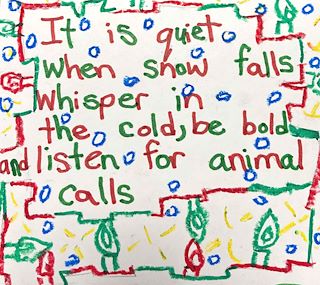 It is quiet
when snow falls
whisper in
the cold, be bold
and listen for animal
calls